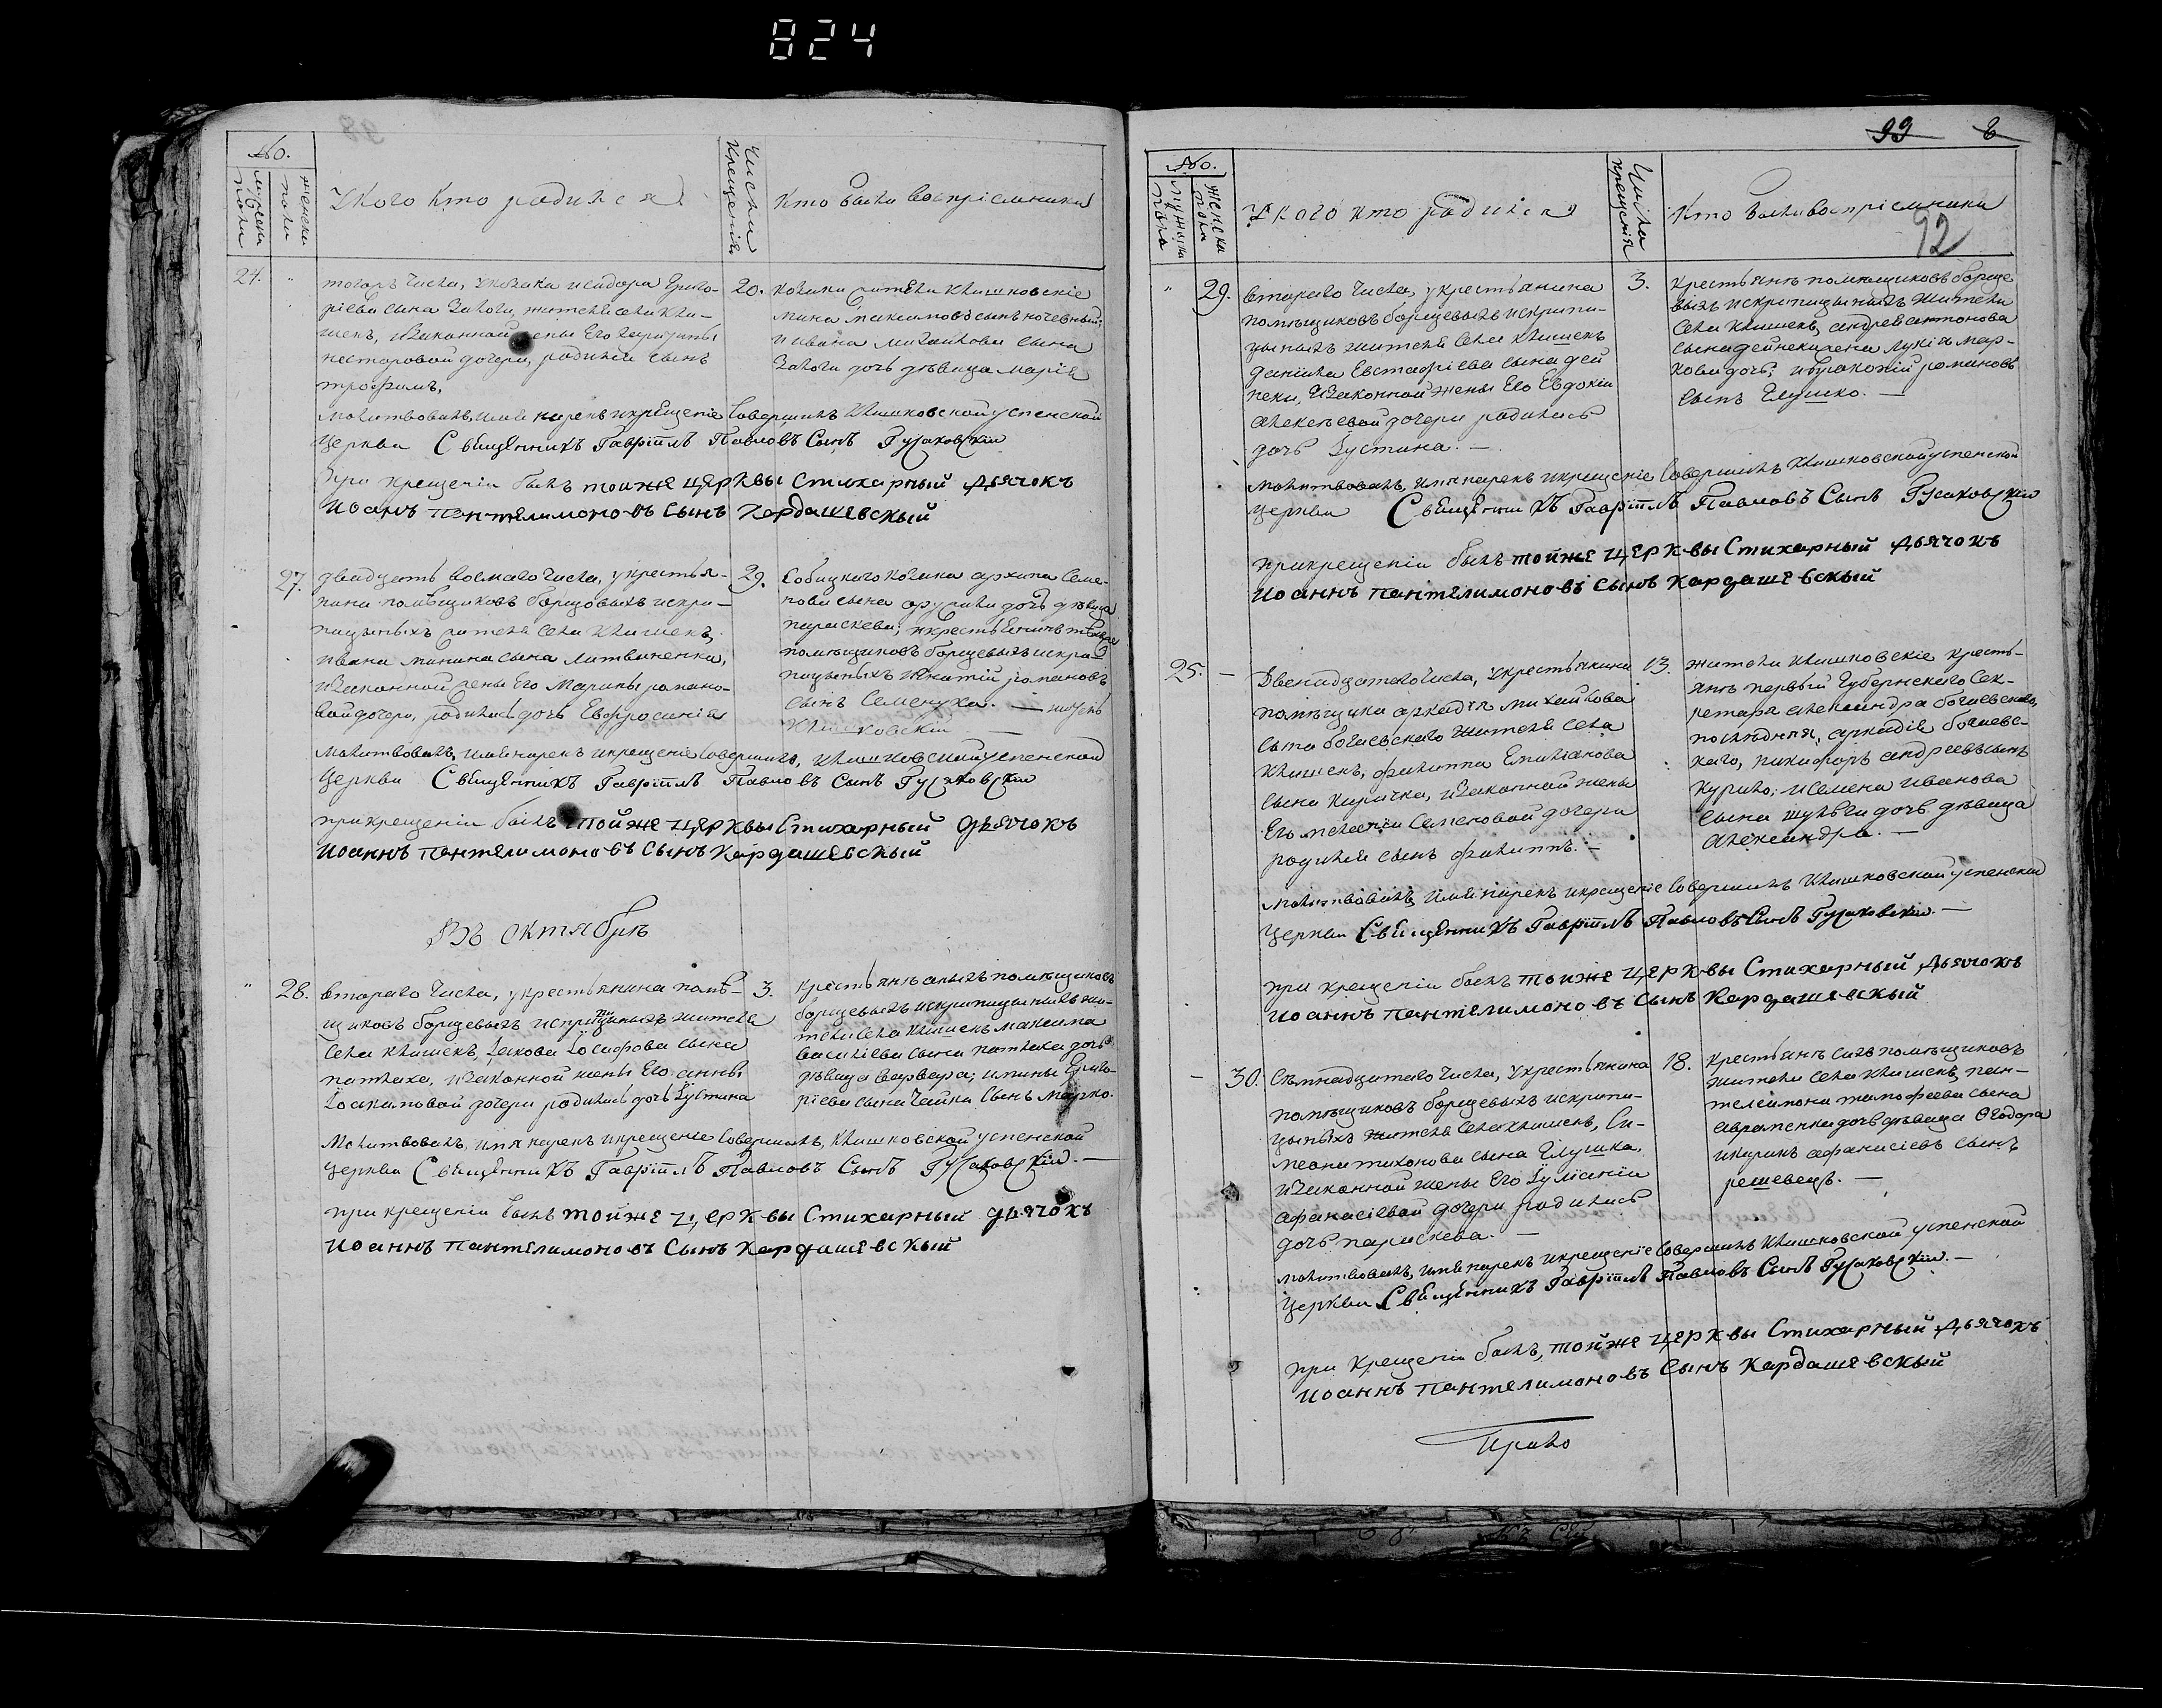 824
No.
мужеска пола
женска пола
У кого кто родился
Числа Крещенія
Кто были воспріемники
24.
тогожъ числа, укозака исидора Григо-
ріева сына житель села Кли-
шекъ, изаконной жены Его
несторовой дочери, родился сынъ
трофимъ,
20.
козаки жители клишковскіе
мина максимовъ сынъ
и ивана михайлова сына
дочь дѣвица марія
молитвовалъ, имя нарекъ икрещеніе совершилъ Клишковской успенской
Церкви Священникъ Гавріилъ Павловъ Сынъ Гусаковскій
При крещеніи былъ тойже церквы Стихарный дьячокъ
Иоанъ Пантелимоновъ Сынъ Кардашевскый
27.
двадцать восмаго числа, укрестья-
нина помѣщиковъ борщовыхъ искри-
пицыныхъ жителя села Клишекъ,
ивана минина сына литвиненка,
изаконной жены Его Марины романо-
вой дочери, родилась дочь Евфросинія
29.
Собицкого козака архипа Семе-
нова сына дочь дѣвица
параскева; икрестьянинъ
помѣщиковъ борщевыхъ искри-
пицыныхъ игнатій романовъ
сынъ Семенуха. —
Клишковскій
молитвовалъ, имя нарекъ икрещеніе совершилъ, клишковской успенской
Церкви Священникъ Гавріилъ Павловъ Сынъ Гусаковскій
прикрещеніи былъ тойже церквы Стихарный дьячокъ
Иоаннъ Пантелимоновъ Сынъ Кардашевскый
Въ октябрѣ
28.
втораго числа, укрестьянина помѣ-
щиковъ борщевыхъ искрипицыныхъ жителя
села клишекъ, Іакова Іосифова сына
изаконной жены Его анны
Іоакимовой дочери родилась дочь Іустина
3.
крестьянъ оныхъ помѣщиковъ
борщевыхъ искрипицыныхъ жи-
тели села клишекъ максима
василіева сына дочь
дѣвица варвара; Григо-
ріева сына Чайки сынъ марко.
Молитвовалъ, имя нарекъ икрещеніе совершилъ, клишковской успенской
Церкви Священникъ Гавріилъ Павловъ Сынъ Гусаковскій. —
при крещеніи былъ тойже церквы Стихарный дьячокъ
Иоаннъ Пантелимоновъ Сынъ Кардашевскый
99
92
No.
мужеска пола
женска пола
У кого кто родился
Числа крещенія
Кто были воспріемники
29.
втораго числа, укрестьянина
помѣщиковъ борщевыхъ искрипи-
цыныхъ жителя села Клишекъ
даніила Евстафіева сына дей
неки, изаконной жены Его Евдокіи
алексѣевой дочери родилась
дочь Іустина. —
3.
крестьянъ помѣщиковъ борще
выхъ искрипицыныхъ жители
села клишекъ, андрея антонова
сына дейнеки жена лукія мар-
кова дочь; ипрокопій романовъ
сынъ Глушко. —
молитвовалъ, имя нарекъ икрещеніе совершилъ клишковской успенской
Церкви Священникъ Гавріилъ Павловъ Сынъ Гусаковскій
прикрещеніи былъ тойже церквы Стихарный дьячокъ
Иоаннъ Пантелимоновъ Сынъ Кардашевскый
25.
Двенадцатого числа, укрестьянина
помѣщика аркадія михайлова
сына богаевскаго жителя села
клишекъ, филиппа Емиліанова
сына Киричка, изаконной жены
Его Семеновой дочери
родился сынъ филиппъ. —
13.
жители клишковскіе кресть-
янъ первый Губернскаго Сек-
ретаря александра богаевскаго,
послѣдняя, аркадія богаевс-
каго, никифоръ андреевъ сынъ
Курило; исемена иванова
сына дочь дѣвица
александра. —
молитвовалъ, имя нарекъ икрещеніе совершилъ клишковской успенской
Церкви Священникъ Гавріилъ Павловъ Сынъ Гусаковскій. —
при крещеніи былъ тойже церквы Стихарный дьячокъ
Иоаннъ Пантелимоновъ Сынъ Кардашевскый
30.
Семнадцатаго числа, укрестьянина
помѣщиковъ борщевыхъ искрипи-
цыныхъ жителя села клишекъ, Си-
меона тихонова сына Глушка,
изаконной жены Его Іуліаніи
афанасіевой дочери родилась
дочь параскева. —
18.
крестьянъ сихъ помѣщиковъ
жители села клишекъ, пан-
телеимона тимофеева сына
авраменка дочь дѣвица Ѳеодора
икирикъ афанасіевъ сынъ
решевецъ. —
молитвовалъ, имя нарекъ икрещеніе совершилъ клишковской успенской
Церкви Священникъ Гавріилъ Павловъ Сынъ Гусаковскій. —
при крещеніи былъ, тойже церквы Стихарный дьячокъ
Иоаннъ Пантелимоновъ Сынъ Кардашевскый